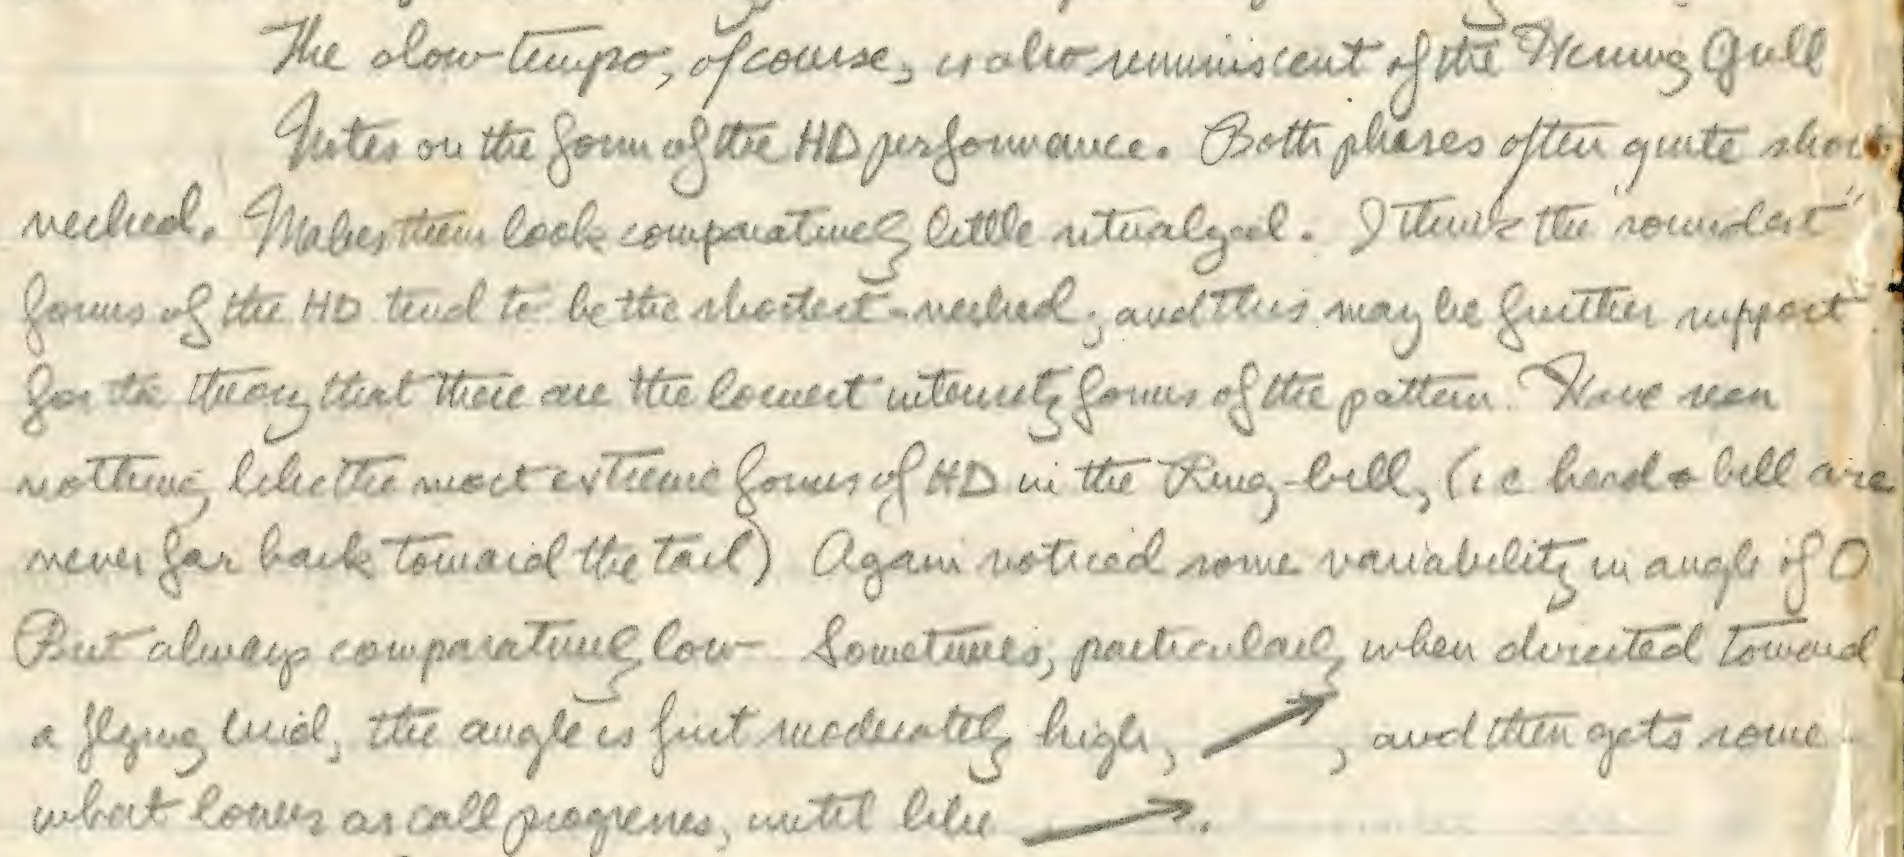 The slow tempo, of course, is also reminiscent of the Herring Gull
Notes on the form of the HD performance. Both phases often quite short
necked. Makes them look comparatively little ritualized. I think the "roundest"
forms of the HD tend to be the shortest-necked, and this may be further support
for the theory that these are the lowest intensity forms of the pattern. Have seen
nothing like the most extreme forms of HD in the Ring-bill, (i.e. head & bill are
never far back toward the tail) Again noticed some variability in angle of O
But always comparatively low Sometimes, particularly when directed toward
a flying bird, the angle is first moderately high, , and then gets some-
what lower as call progresses, until like .